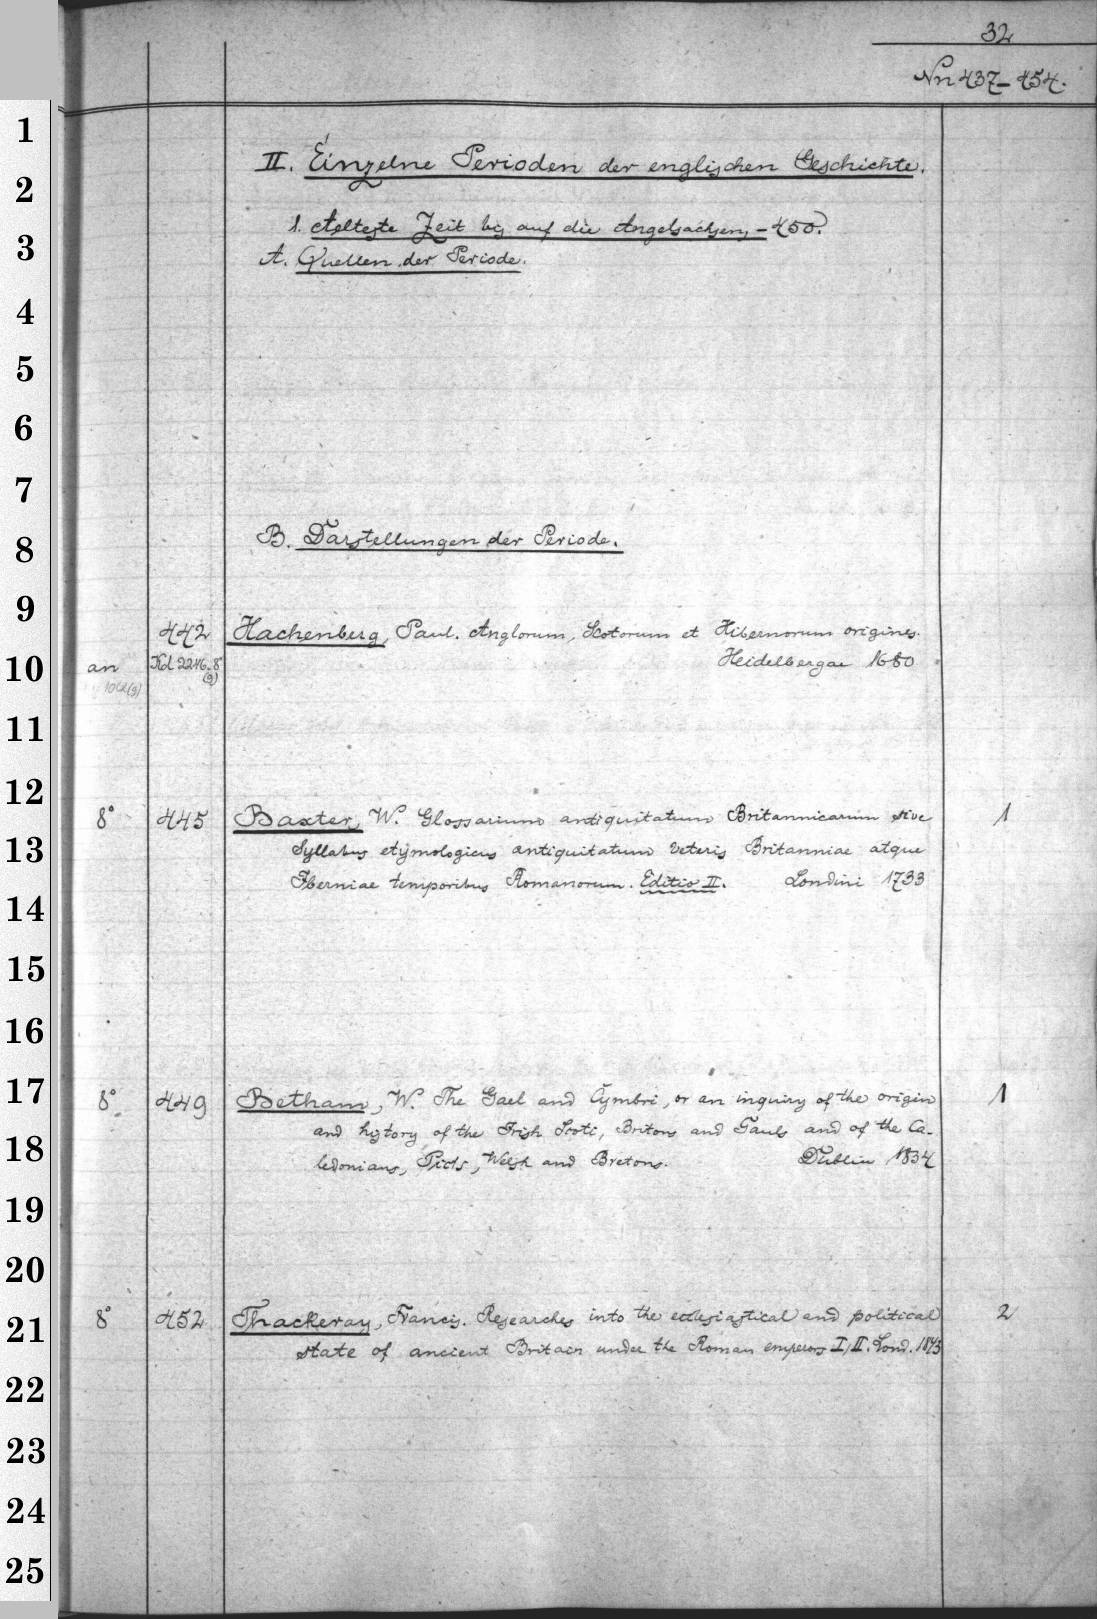 32
Nn 437-454.
1
II. Einzelne Perioden der englischen Geschichte.
2
1. Aelteste Zeit bis auf die Angelsachsen, -450.
3
A. Quellen der Periode.
4
5
6
7
B. Darstellungen der Periode.
8
9
442 Hachenberg, Paul. Anglorum, Scotorum et Hibernorum origines.
10 an Kd 2246. 8° Heidelbergae 1680
(9)
11
12
8° 445 Baxter, W. Glossarium antiquitatum Britannicarum sive 1
13 Syllabus etymologicus antiquitatum veteris Britanniae atque
Iberniae temporibus Romanorum. Editio II. Londini 1733
14
15
16
17 8° 449 Betham, W. The Gael and Cymbri, or an inquiry of the origin 1
and history of the Irish Scoti, Britons and Gauls and of the Ca-
18 ledonians, Picts, Welsh and Bretons. Dublin 1834
19
20
8° 452 Thackeray, Francis. Researches into the ecclesiastical and political 2
21 state of ancient Britain under the Roman emperors I, II. Lond. 1843
22
23
24
25